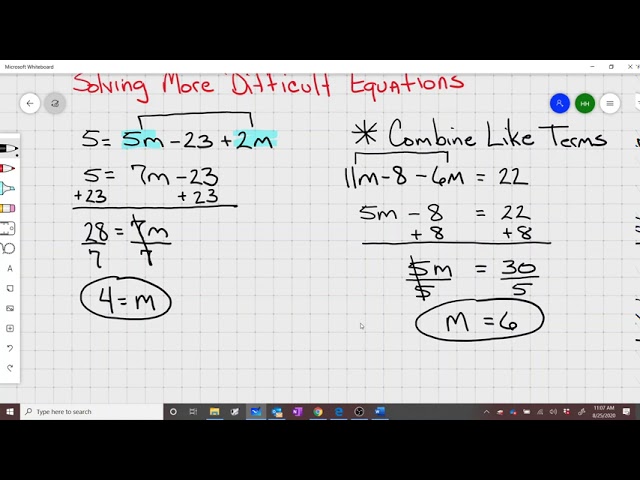 Microsoft Whiteboard
Solving More Difficult Equations
HH
5 = 5m - 23 + 2m
5 = 7m - 23
+23 +23
28 = 7m
7 7
4 = m
* Combine Like Terms
11m - 8 - 6m = 22
5m - 8 = 22
+8 +8
5m = 30
5 5
m = 6
Type here to search
11:07 AM
8/25/2020